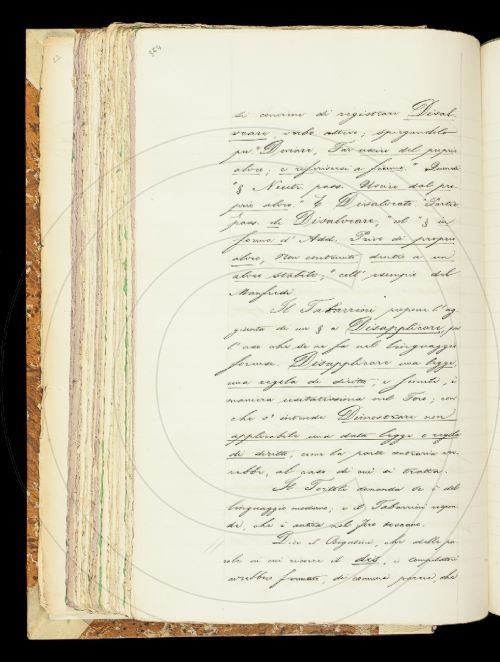 354
si convenne di registrare Disal-
veare, verbo attivo; spiegandolo
per "Deviare, Far uscire del proprio
alveo; e riferiscesi a fiume." Quindi
"§ Neutr. pass. Uscire dal pro-
prio alveo." E Disalveato, "Partic.
pass. di Disalveare;" col "§ in
forma d'Add. Privo di proprio
alveo, Non contenuto dentro a un
alveo stabile;" coll'esempio del
Manfredi.
Il Tabarrini propone l'ag-
giunta di un § a Disapplicare, per
l'uso che se ne fa nel linguaggio
forense. Disapplicare una legge,
una regola di diritto, e simili, è
maniera usitatissima nel Foro; con
che s'intende Dimostrare non
applicabile una data legge o regola
di diritto, come la parte contraria vor-
rebbe, al caso di cui si tratta.
Il Tortoli domanda se è del
linguaggio moderno; e il Tabarrini rispon-
de, che è antica nel Foro toscano.
Dice il Bergantini, che delle pa-
role in cui ricorre il dis, i compilatori
avrebbero formato, di comune parere, che